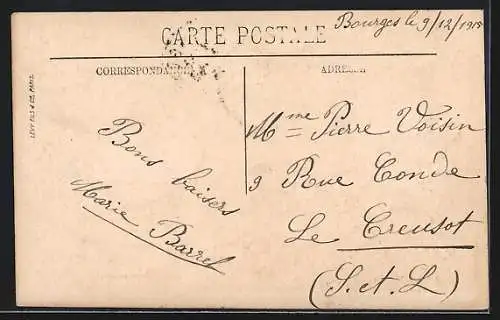 CARTE POSTALE
Bourges le 9/12/1918
CORRESPONDANCE
ADRESSE
LEVY FILS & CIE, PARIS
Bons baisers
Marie Barrel
Mme Pierre Voisin
9 Rue Condé
Le Creusot
(S. et L)